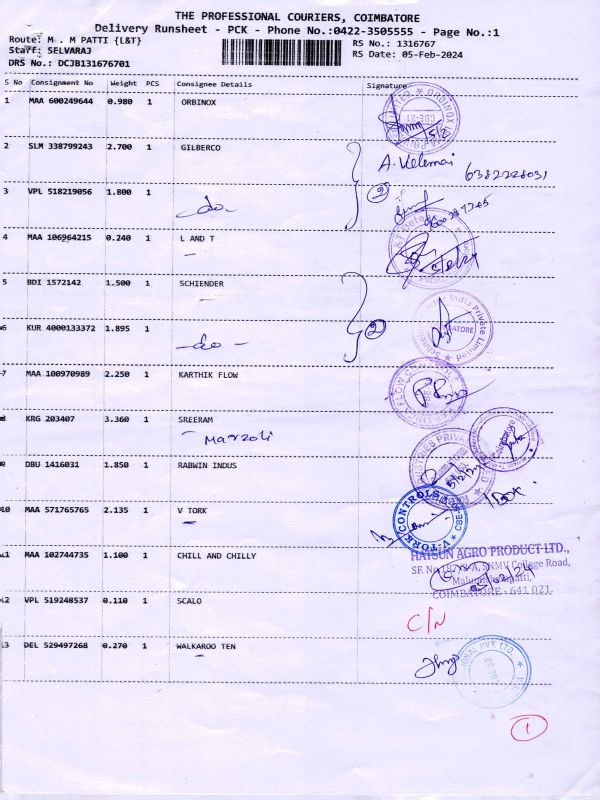 THE PROFESSIONAL COURIERS, COIMBATORE
Delivery Runsheet - PCK - Phone No.:0422-3505555 - Page No.:1
Route: M . M PATTI {L&T} RS No.: 1316767
Staff: SELVARAJ RS Date: 05-Feb-2024
DRS No.: DCJB131676701
S No Consignment No Weight PCS Consignee Details Signature
1 MAA 600249644 0.980 1 ORBINOX
2 SLM 338799243 2.700 1 GILBERCO
A. Velemai 6382228031
3 VPL 518219056 1.800 1
-do- 2
4 MAA 106964215 0.240 1 L AND T
5 BDI 1572142 1.500 1 SCHIENDER
6 KUR 4000133372 1.895 1
-do- 2
7 MAA 100970989 2.250 1 KARTHIK FLOW
8 KRG 203407 3.360 1 SREERAM
Marzoli
9 DBU 1416031 1.850 1 RABWIN INDUS
1 Box
10 MAA 571765765 2.135 1 V TORK
V-TORK CONTROLS CBE
11 MAA 102744735 1.100 1 CHILL AND CHILLY
HATSUN AGRO PRODUCT LTD.,
SNMV College Road,
COIMBATORE - 641 021.
05/02/24
12 VPL 519248537 0.110 1 SCALO
C/N
13 DEL 529497268 0.270 1 WALKAROO TEN
1